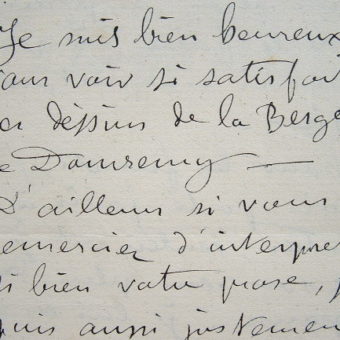 Je suis bien heureux
vous voir si satisfai
es dessins de la Berge
e Domremy —
D'ailleurs si vous
emercier d'interpre
si bien votre prose, j
uis aussi justemen